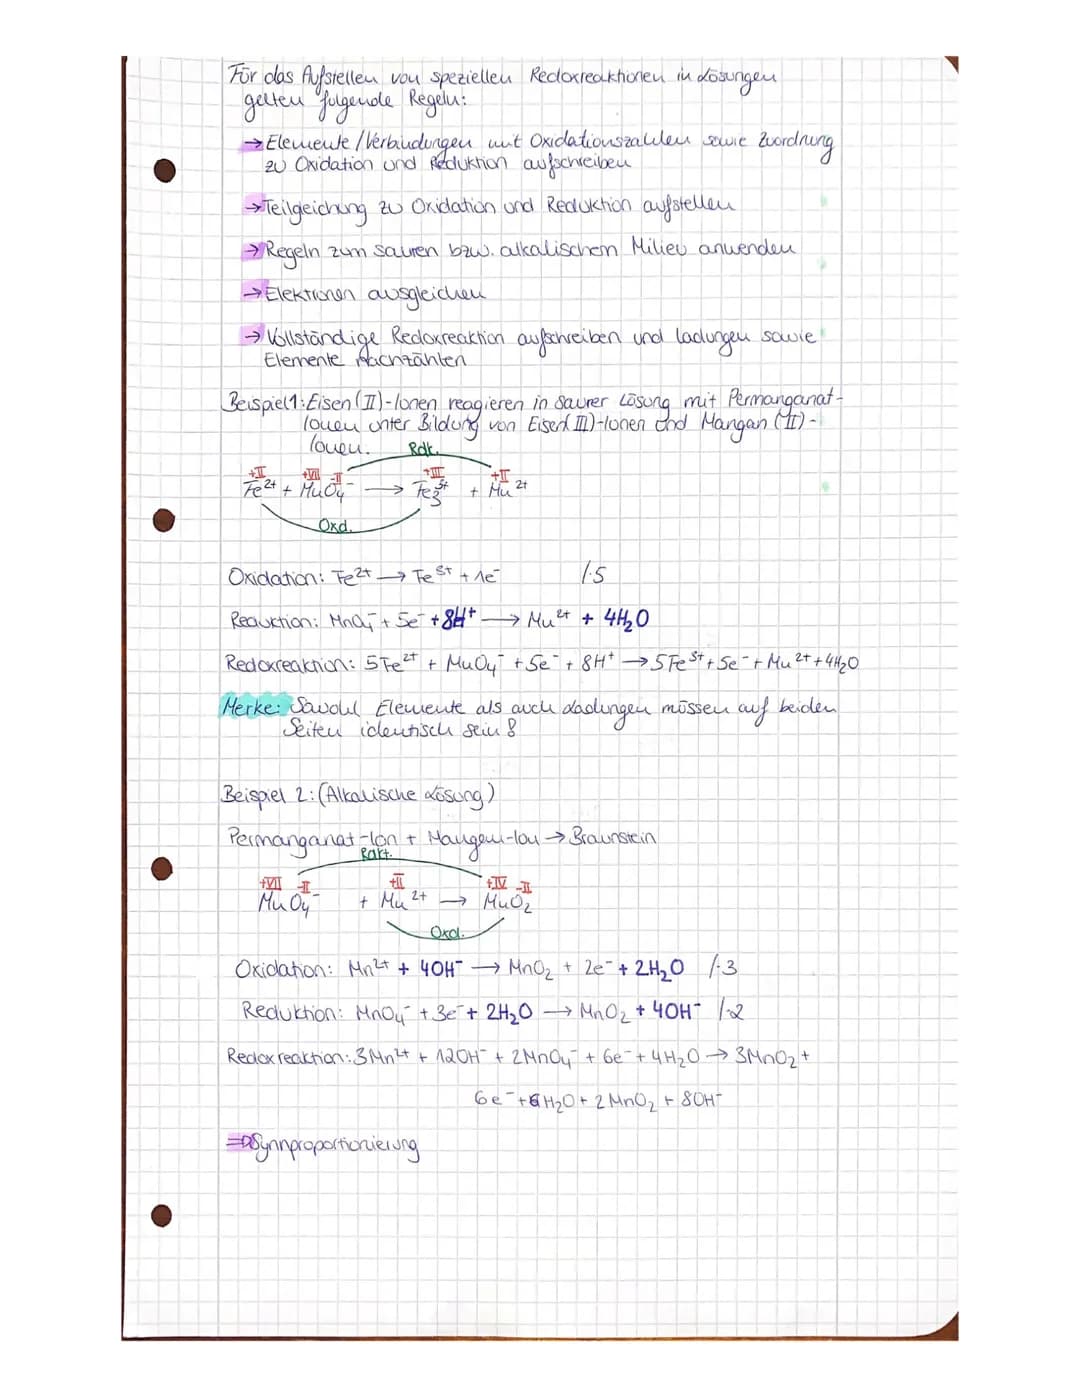 Für das Aufstellen von speziellen Redoxreaktionen in Lösungen
gelten folgende Regeln:
→ Elemente / Verbindungen mit Oxidationszahlen sowie Zuordnung
zu Oxidation und Reduktion aufschreiben
→ Teilgeichung zu Oxidation und Reduktion aufstellen
→ Regeln zum sauren bzw. alkalischem Milieu anwenden
→ Elektronen ausgleichen
→ Vollständige Redoxreaktion aufschreiben und ladungen sowie
Elemente Nachzählen
Beispiel 1: Eisen (II)-Ionen reagieren in saurer Lösung mit Permanganat-
Ionen unter Bildung von Eisen(III)-Ionen und Mangan (II)-
Ionen.
Rdk.
+II +VII -II +III +II
Fe²⁺ + MnO₄⁻ → Fe³⁺ + Mn²⁺
Oxd.
Oxidation: Fe²⁺ → Fe³⁺ + 1e⁻ /·5
Reduktion: MnO₄⁻ + 5e⁻ + 8H⁺ → Mn²⁺ + 4H₂O
Redoxreaktion: 5Fe²⁺ + MnO₄⁻ + 5e⁻ + 8H⁺ → 5Fe³⁺ + 5e⁻ + Mn²⁺ + 4H₂O
Merke: Sowohl Elemente als auch Ladungen müssen auf beiden
Seiten identisch sein!
Beispiel 2: (Alkalische Lösung)
Permanganat-Ion + Mangan-Ion → Braunstein
Rdkt.
+VII -II +II +IV -II
MnO₄⁻ + Mn²⁺ → MnO₂
Oxd.
Oxidation: Mn²⁺ + 4OH⁻ → MnO₂ + 2e⁻ + 2H₂O /·3
Reduktion: MnO₄⁻ + 3e⁻ + 2H₂O → MnO₂ + 4OH⁻ /·2
Redoxreaktion: 3Mn²⁺ + 12OH⁻ + 2MnO₄⁻ + 6e⁻ + 4H₂O → 3MnO₂ +
6e⁻ + 6H₂O + 2MnO₂ + 8OH⁻
⇒ Synnproportionierung